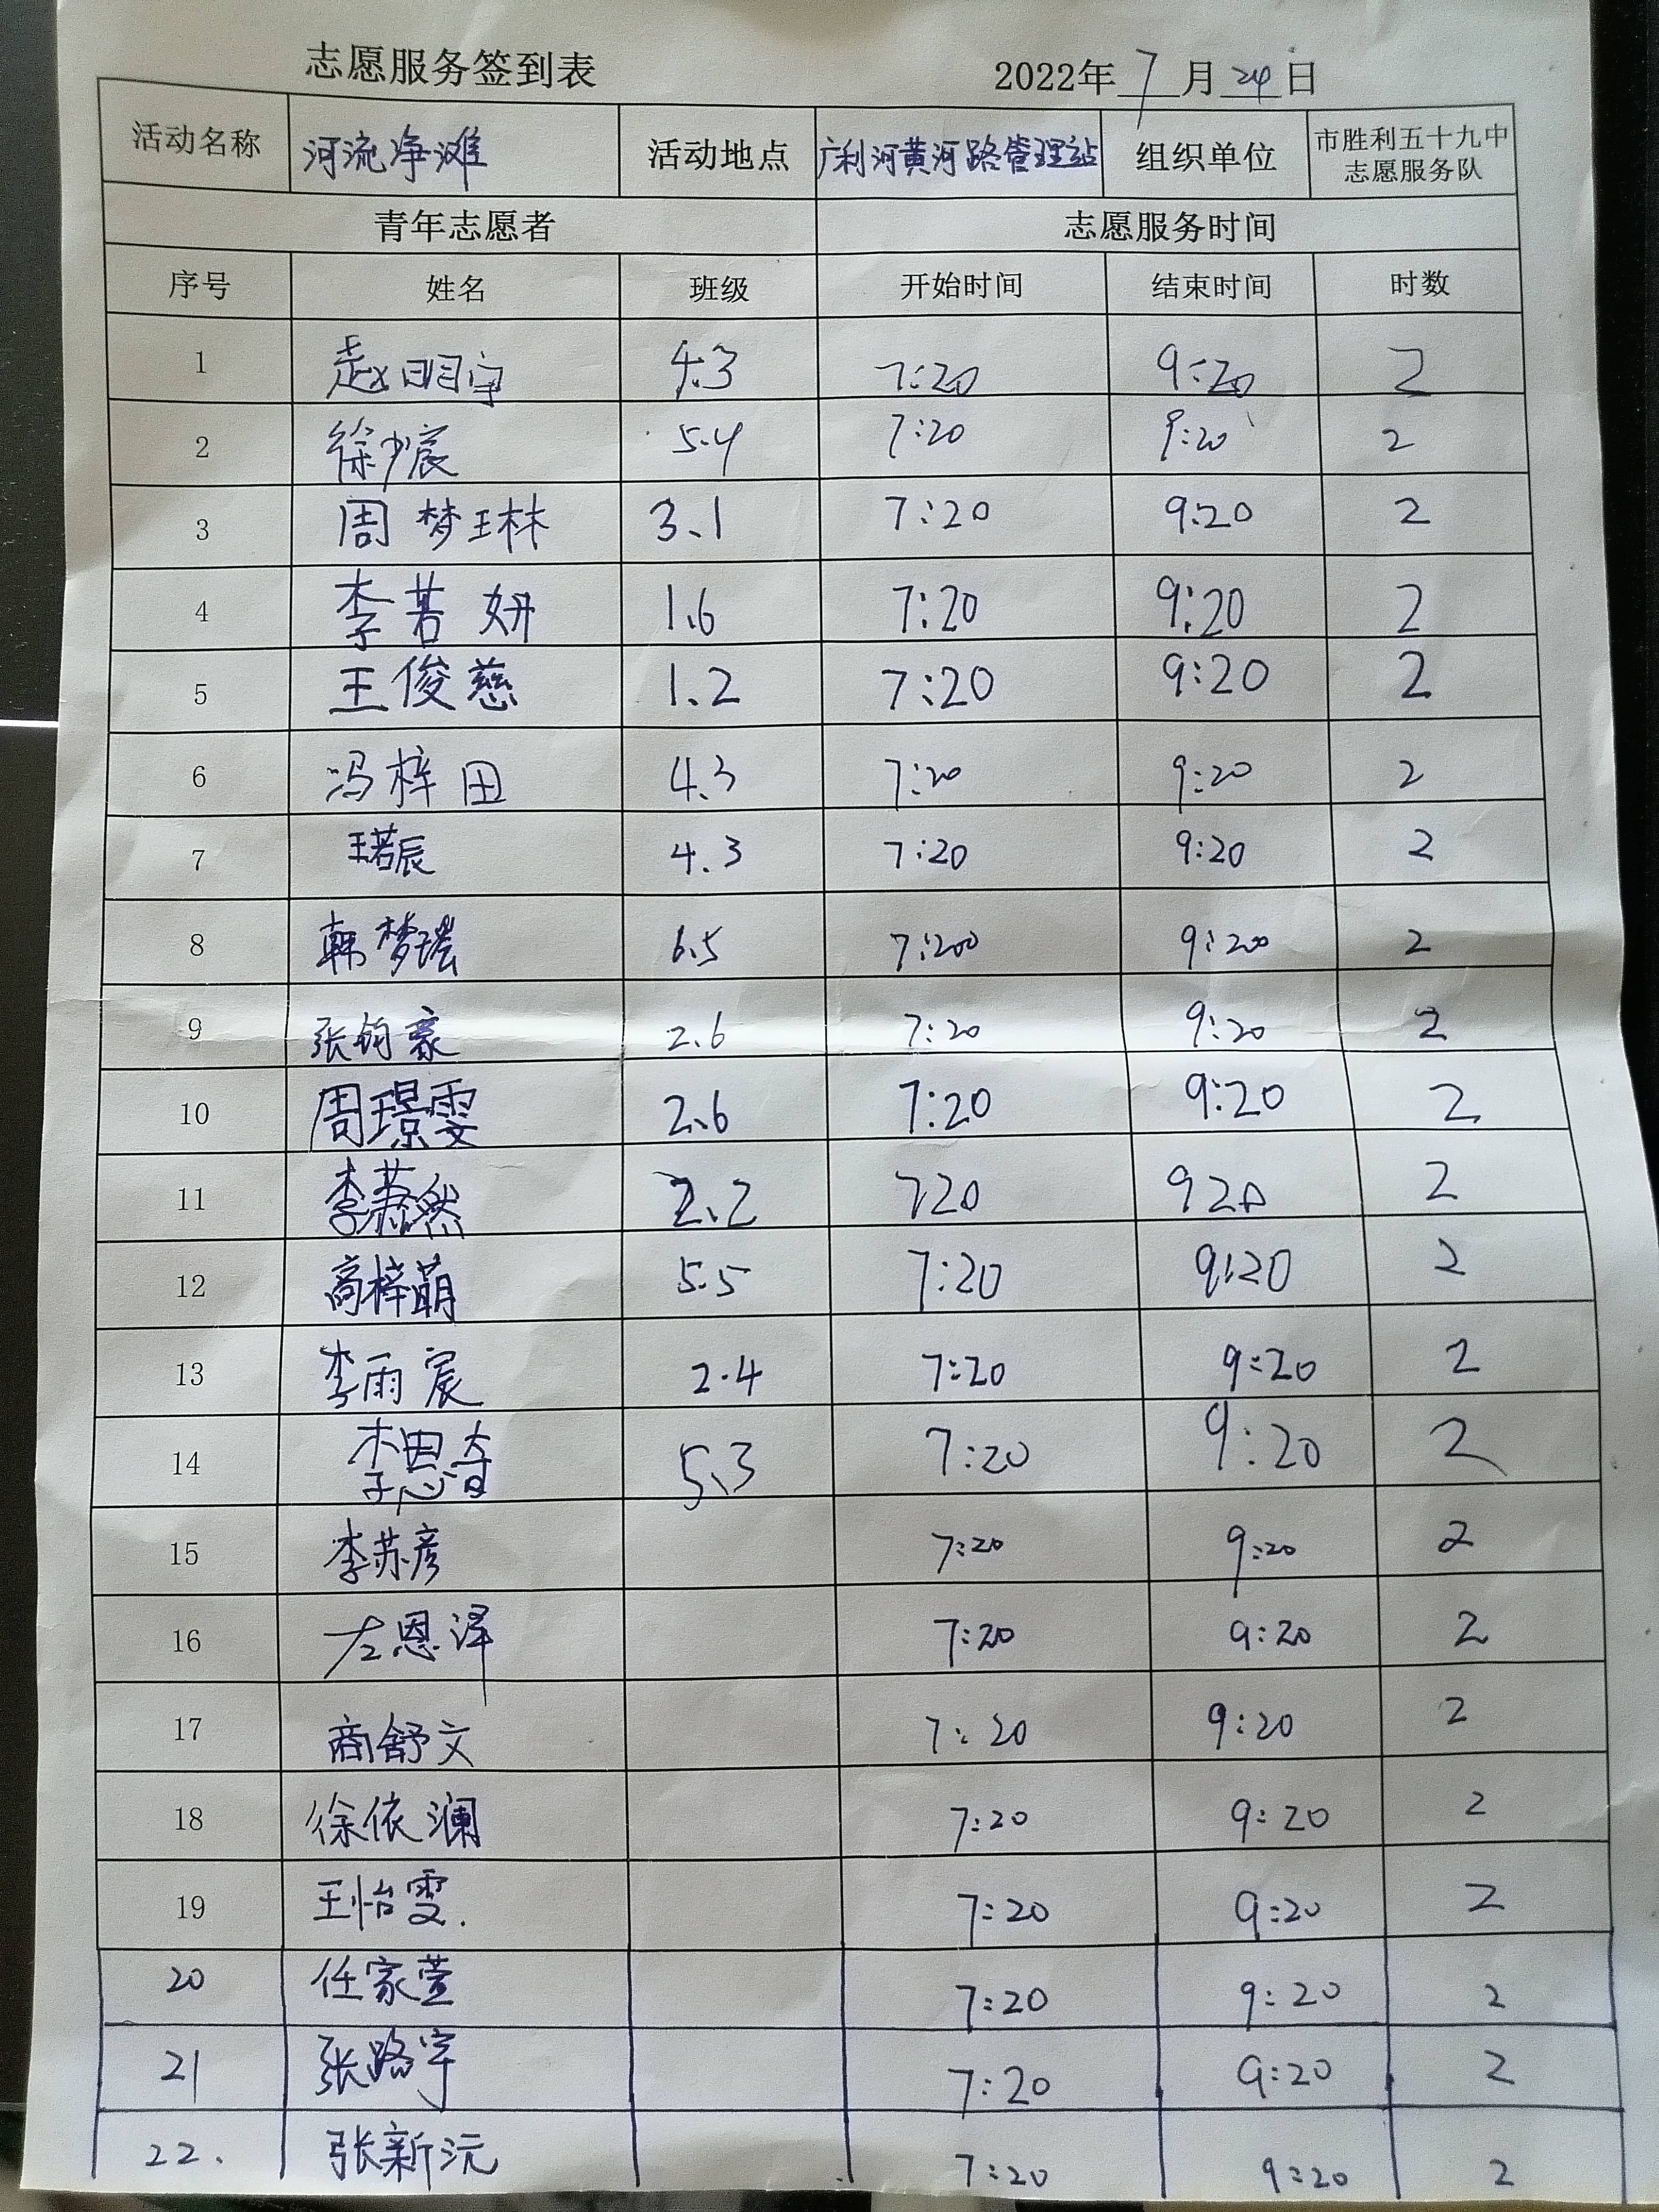 志愿服务签到表 2022年7月24日
活动名称 河流净滩 活动地点 广利河黄河路管理站 组织单位 市胜利五十九中
志愿服务队
青年志愿者 志愿服务时间
序号 姓名 班级 开始时间 结束时间 时数
1 赵明宇 4.3 7:20 9:20 2
2 徐少宸 5.4 7:20 9:20 2
3 周梦琳 3.1 7:20 9:20 2
4 李若妍 1.6 7:20 9:20 2
5 王俊慈 1.2 7:20 9:20 2
6 冯梓田 4.3 7:20 9:20 2
7 王若辰 4.3 7:20 9:20 2
8 韩梦 6.5 7:200 9:200 2
9 张钧豪 2.6 7:20 9:20 2
10 周璟雯 2.6 7:20 9:20 2
11 李萧然 2.2 720 920 2
12 高梓萌 5.5 7:20 9:20 2
13 李雨宸 2.4 7:20 9:20 2
14 李思奇 5.3 7:20 9:20 2
15 李苏彦 7:20 9:20 2
16 左恩泽 7:20 9:20 2
17 商舒文 7:20 9:20 2
18 徐依澜 7:20 9:20 2
19 王怡雯. 7:20 9:20 2
20 任家萱 7:20 9:20 2
21 张路宇 7:20 9:20 2
22. 张新沅 7:20 9:20 2